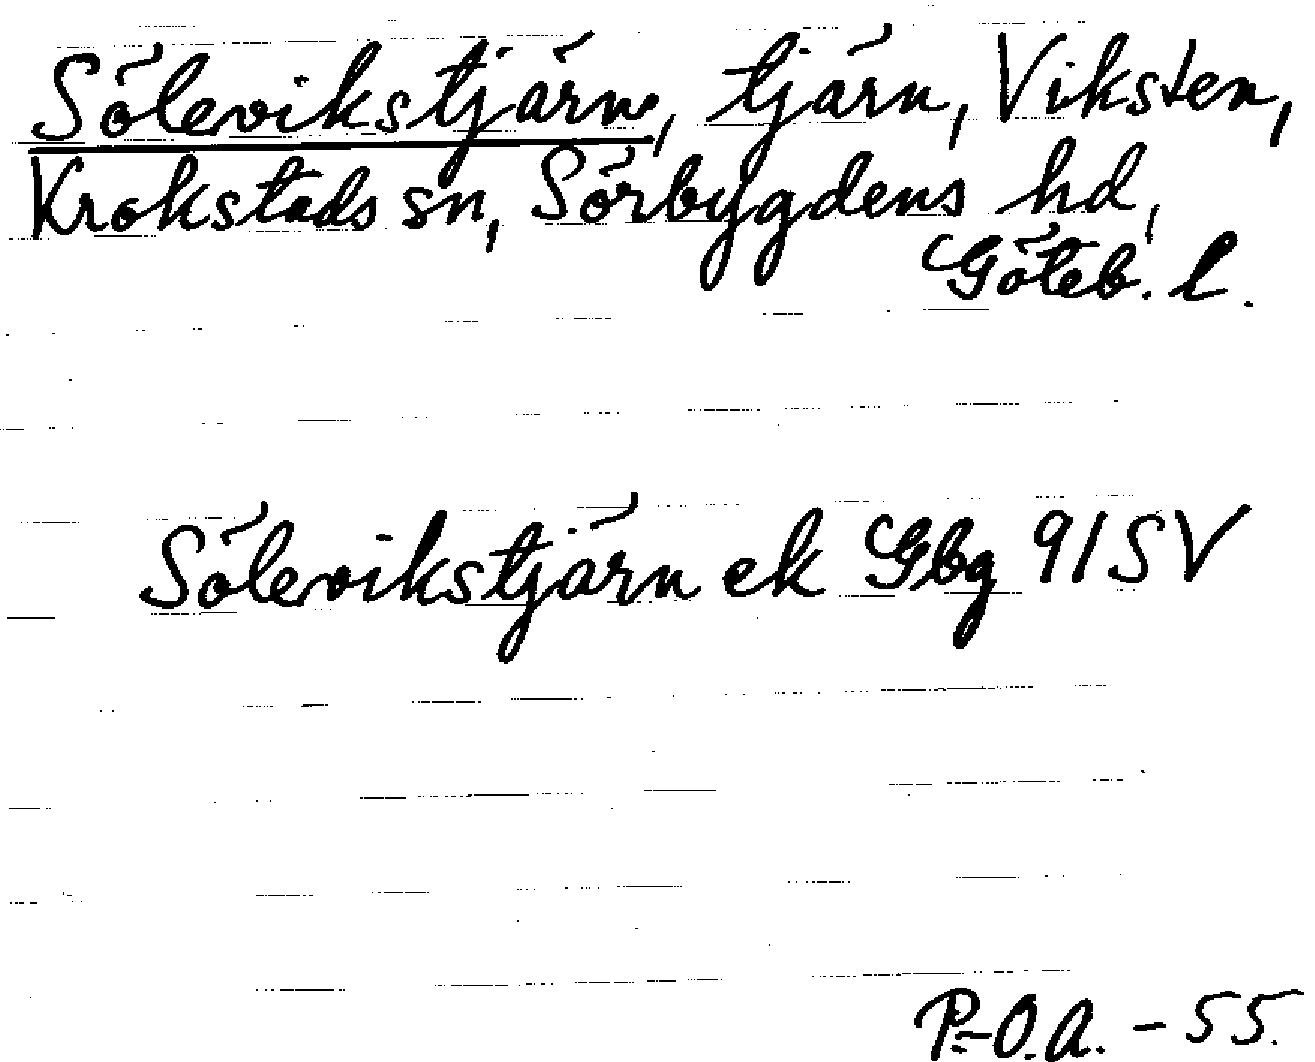 Sölevikstjärn, tjärn, Viksten,
Krokstads sn, Sörbygdens hd,
Göteb. l.
Sölevikstjärn ek Gbg 91SV
P.-O.A. - 55.